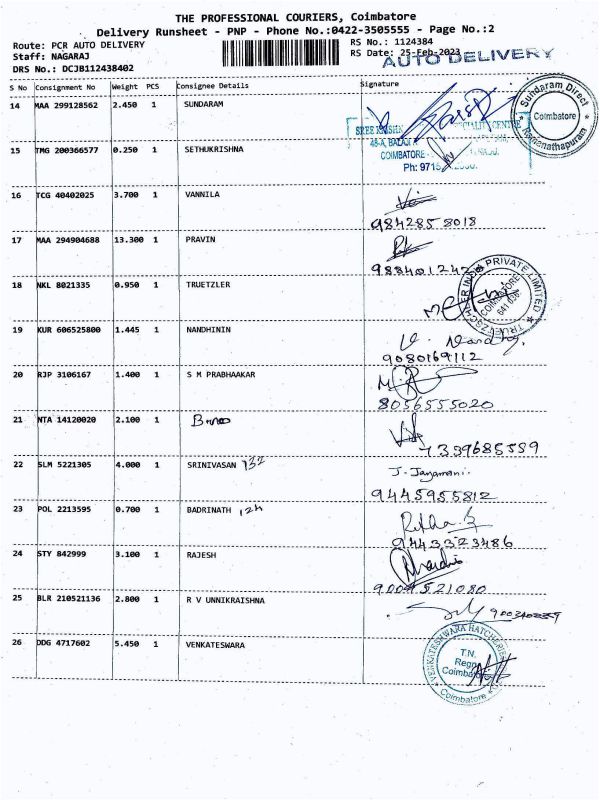 THE PROFESSIONAL COURIERS, Coimbatore
Delivery Runsheet - PNP - Phone No.:0422-3505555 - Page No.:2
Route: PCR AUTO DELIVERY RS No.: 1124384
Staff: NAGARAJ RS Date: 25-Feb-2023
AUTO DELIVERY
DRS No.: DCJB112438402
S No Consignment No Weight PCS Consignee Details Signature
14 MAA 299128562 2.450 1 SUNDARAM
Sundaram Direct Coimbatore Ramanathapuram
SREE KRISHN
COIMBATORE
Ph: 9715
15 TMG 200366577 0.250 1 SETHUKRISHNA
16 TCG 40402025 3.700 1 VANNILA
9842858018
17 MAA 294904688 13.300 1 PRAVIN
988401247
18 NKL 8021335 0.950 1 TRUETZLER
TRUETZSCHLER INDIA PRIVATE LIMITED COIMBATORE
19 KUR 606525800 1.445 1 NANDHININ
9080169112
20 RJP 3106167 1.400 1 S M PRABHAAKAR
8056555020
21 NTA 14120020 2.100 1
7339685559
22 SLM 5221305 4.000 1 SRINIVASAN 732
J. Jayamani.
9445955812
23 POL 2213595 0.700 1 BADRINATH 124
9443323486
24 STY 842999 3.100 1 RAJESH
25 BLR 210521136 2.800 1 R V UNNIKRAISHNA
26 DDG 4717602 5.450 1 VENKATESWARA
VENKATESHWARA HATCHERIES
T.N.
Regn
Coimbatore